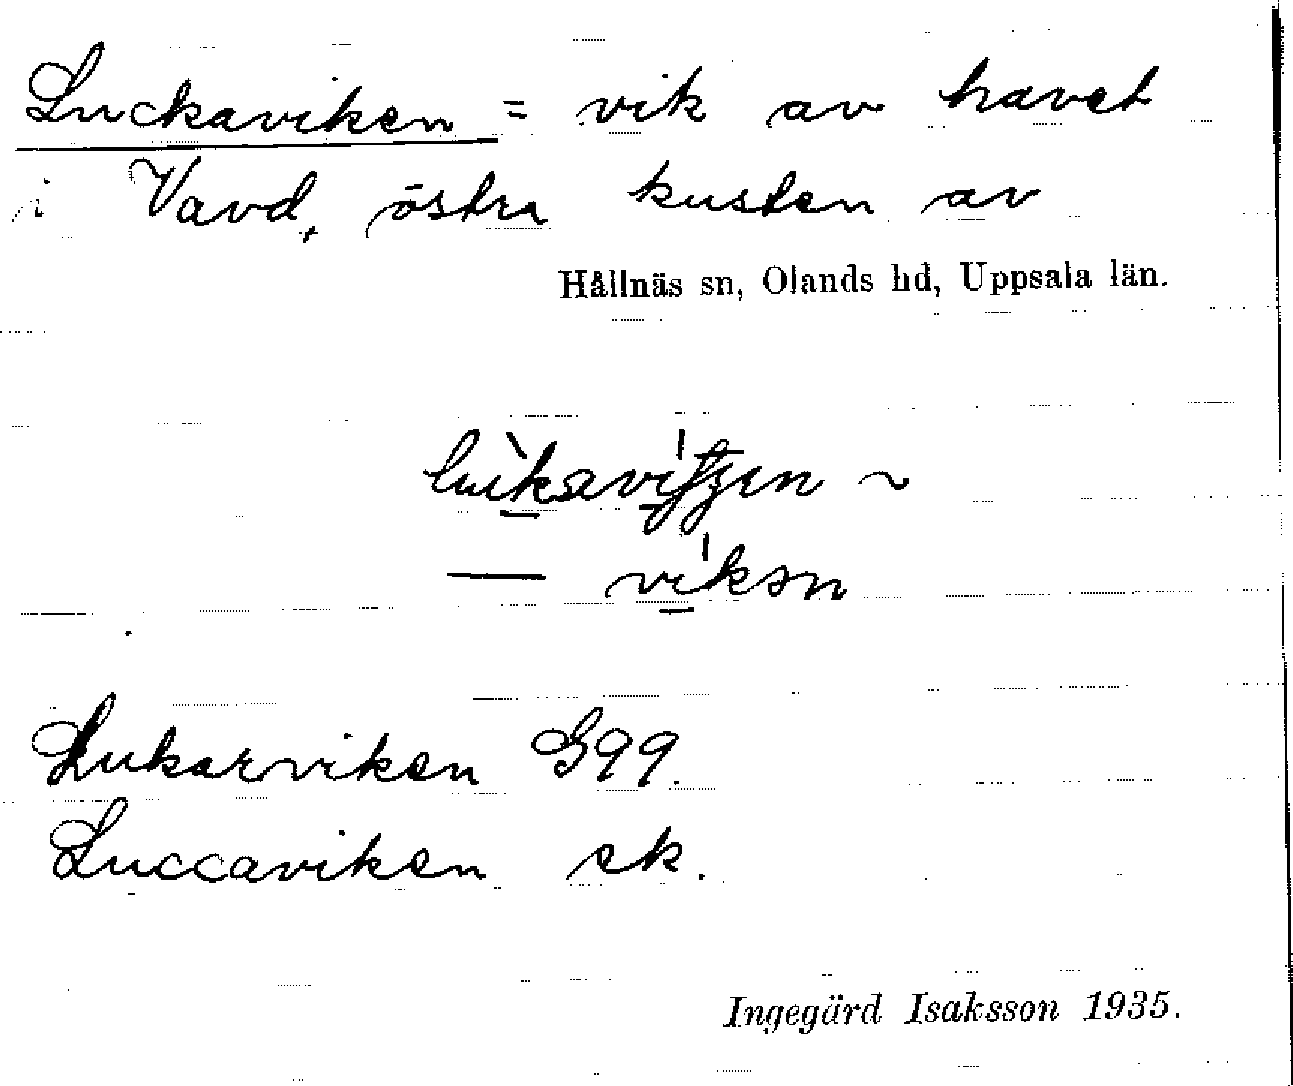 Luckaviken = vik av havet
i Vavd, östra kusten av
Hållnäs sn, Olands hd, Uppsala län.
— vikən
Lukarviken G99.
Luccaviken ek.
Ingegärd Isaksson 1935.